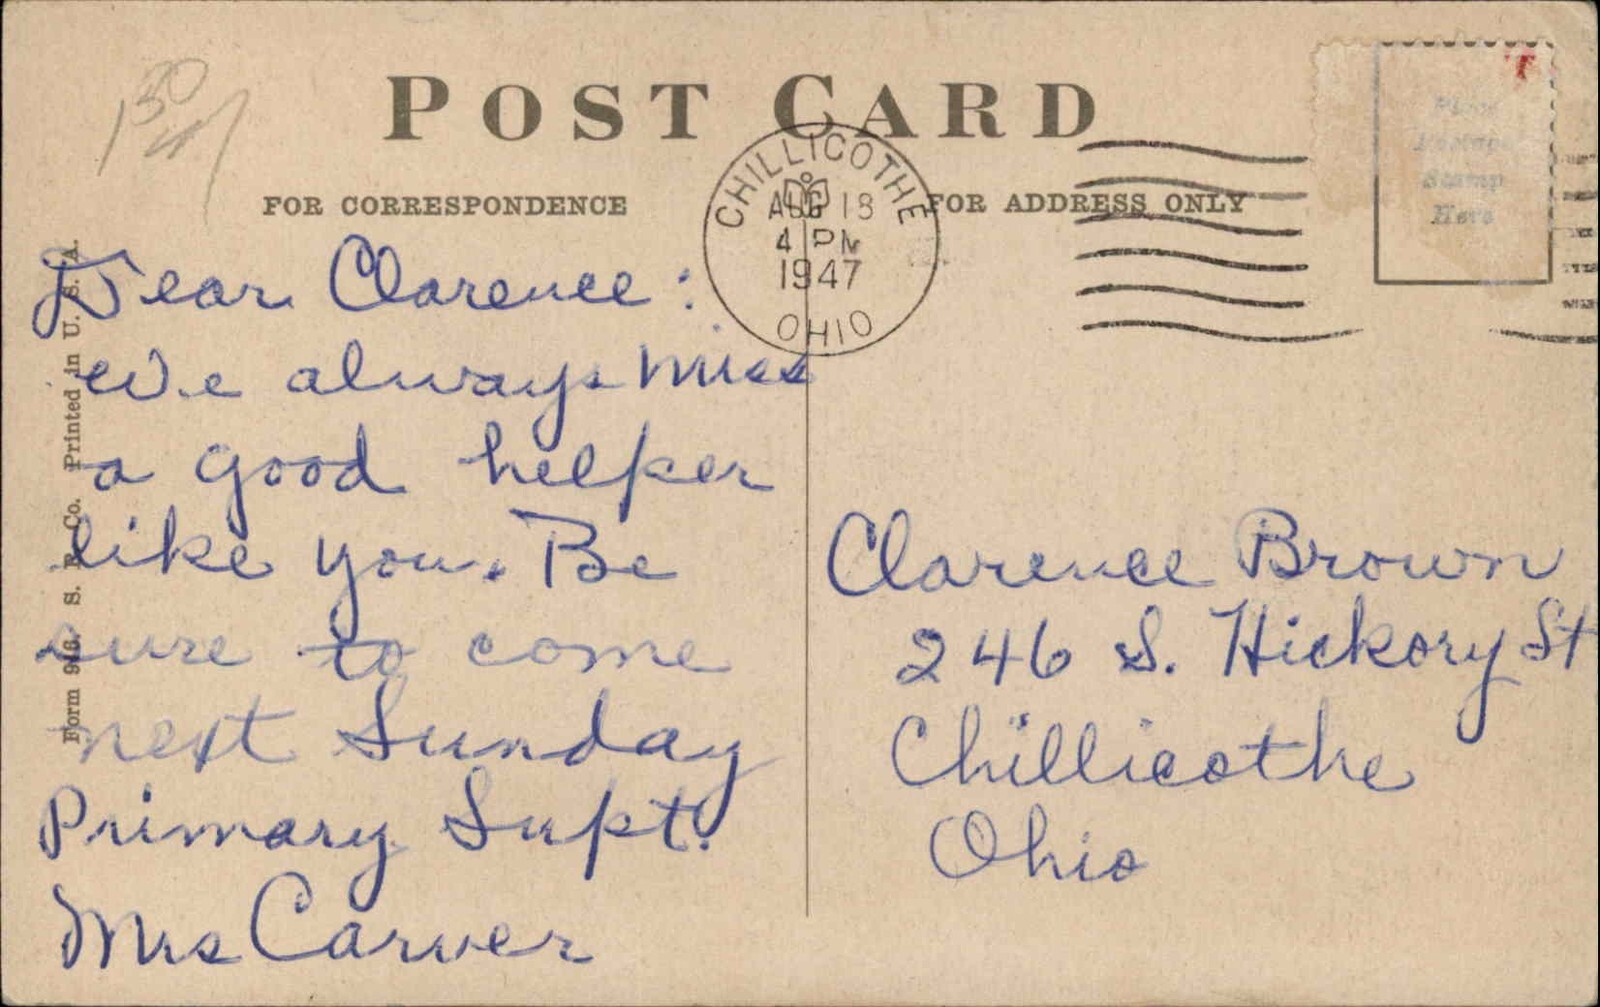 POST CARD
FOR CORRESPONDENCE
FOR ADDRESS ONLY
CHILLICOTHE
AUG 18
4 PM
1947
OHIO
Place
Postage
Stamp
Here
Dear Clarence:
We always miss
a good helper
like you. Be
sure to come
next Sunday
Primary Supt.
Mrs Carver
Clarence Brown
246 S. Hickory St
Chillicothe
Ohio
Form 946. S. R. Co. Printed in U. S. A.